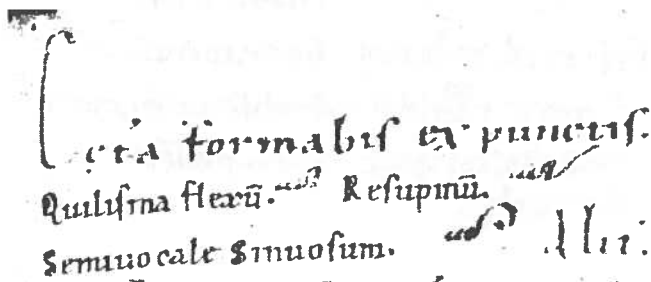 Lęta formabis ex punctis.
Quilisma flexū. Resupinū.
Semiuocale Sinuosum.